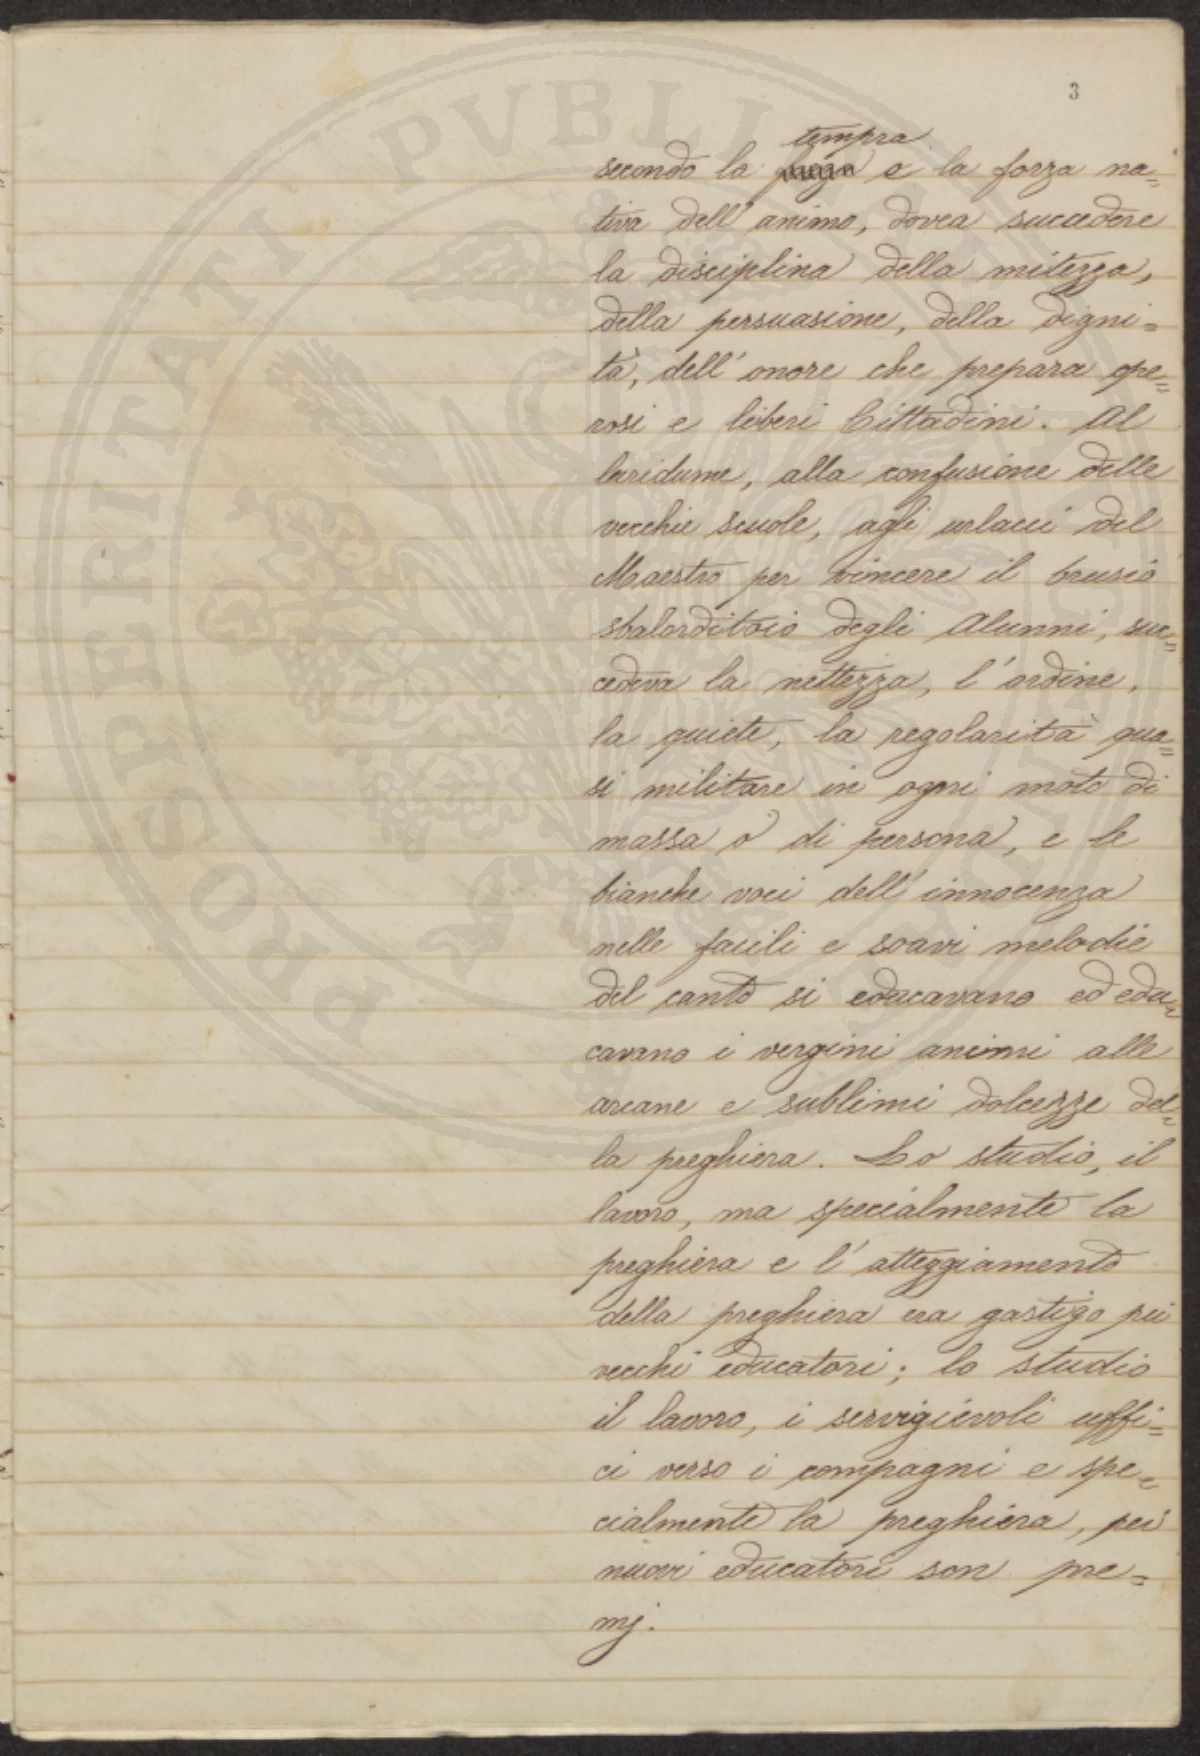 3
tempra
secondo la forza e la forza na=
tiva dell'animo, dovea succedere
la disciplina della mitezza,
della persuasione, della digni=
tà, dell'onore che prepara ope=
rosi e liberi Cittadini. Al
luridume, alla confusione delle
vecchie scuole, agli urlacci del
Maestro per vincere il brusio
sbalorditoio degli Alunni, suc=
cedeva la nettezza, l'ordine,
la quiete, la regolarità qua=
si militare in ogni moto di
massa o di persona, e le
bianche voci dell'innocenza
nelle facili e soavi melodie
del canto si educavano ed edu=
cavano i vergini animi alle
arcane e sublimi dolcezze del=
la preghiera. Lo studio, il
lavoro, ma specialmente la
preghiera e l'atteggiamento
della preghiera era gastigo pei
vecchi educatori; lo studio
il lavoro, i servigievoli uffi=
ci verso i compagni e spe=
cialmente la preghiera, pei
nuovi educatori son pre=
mj.
PROSPERITATI PVBLI